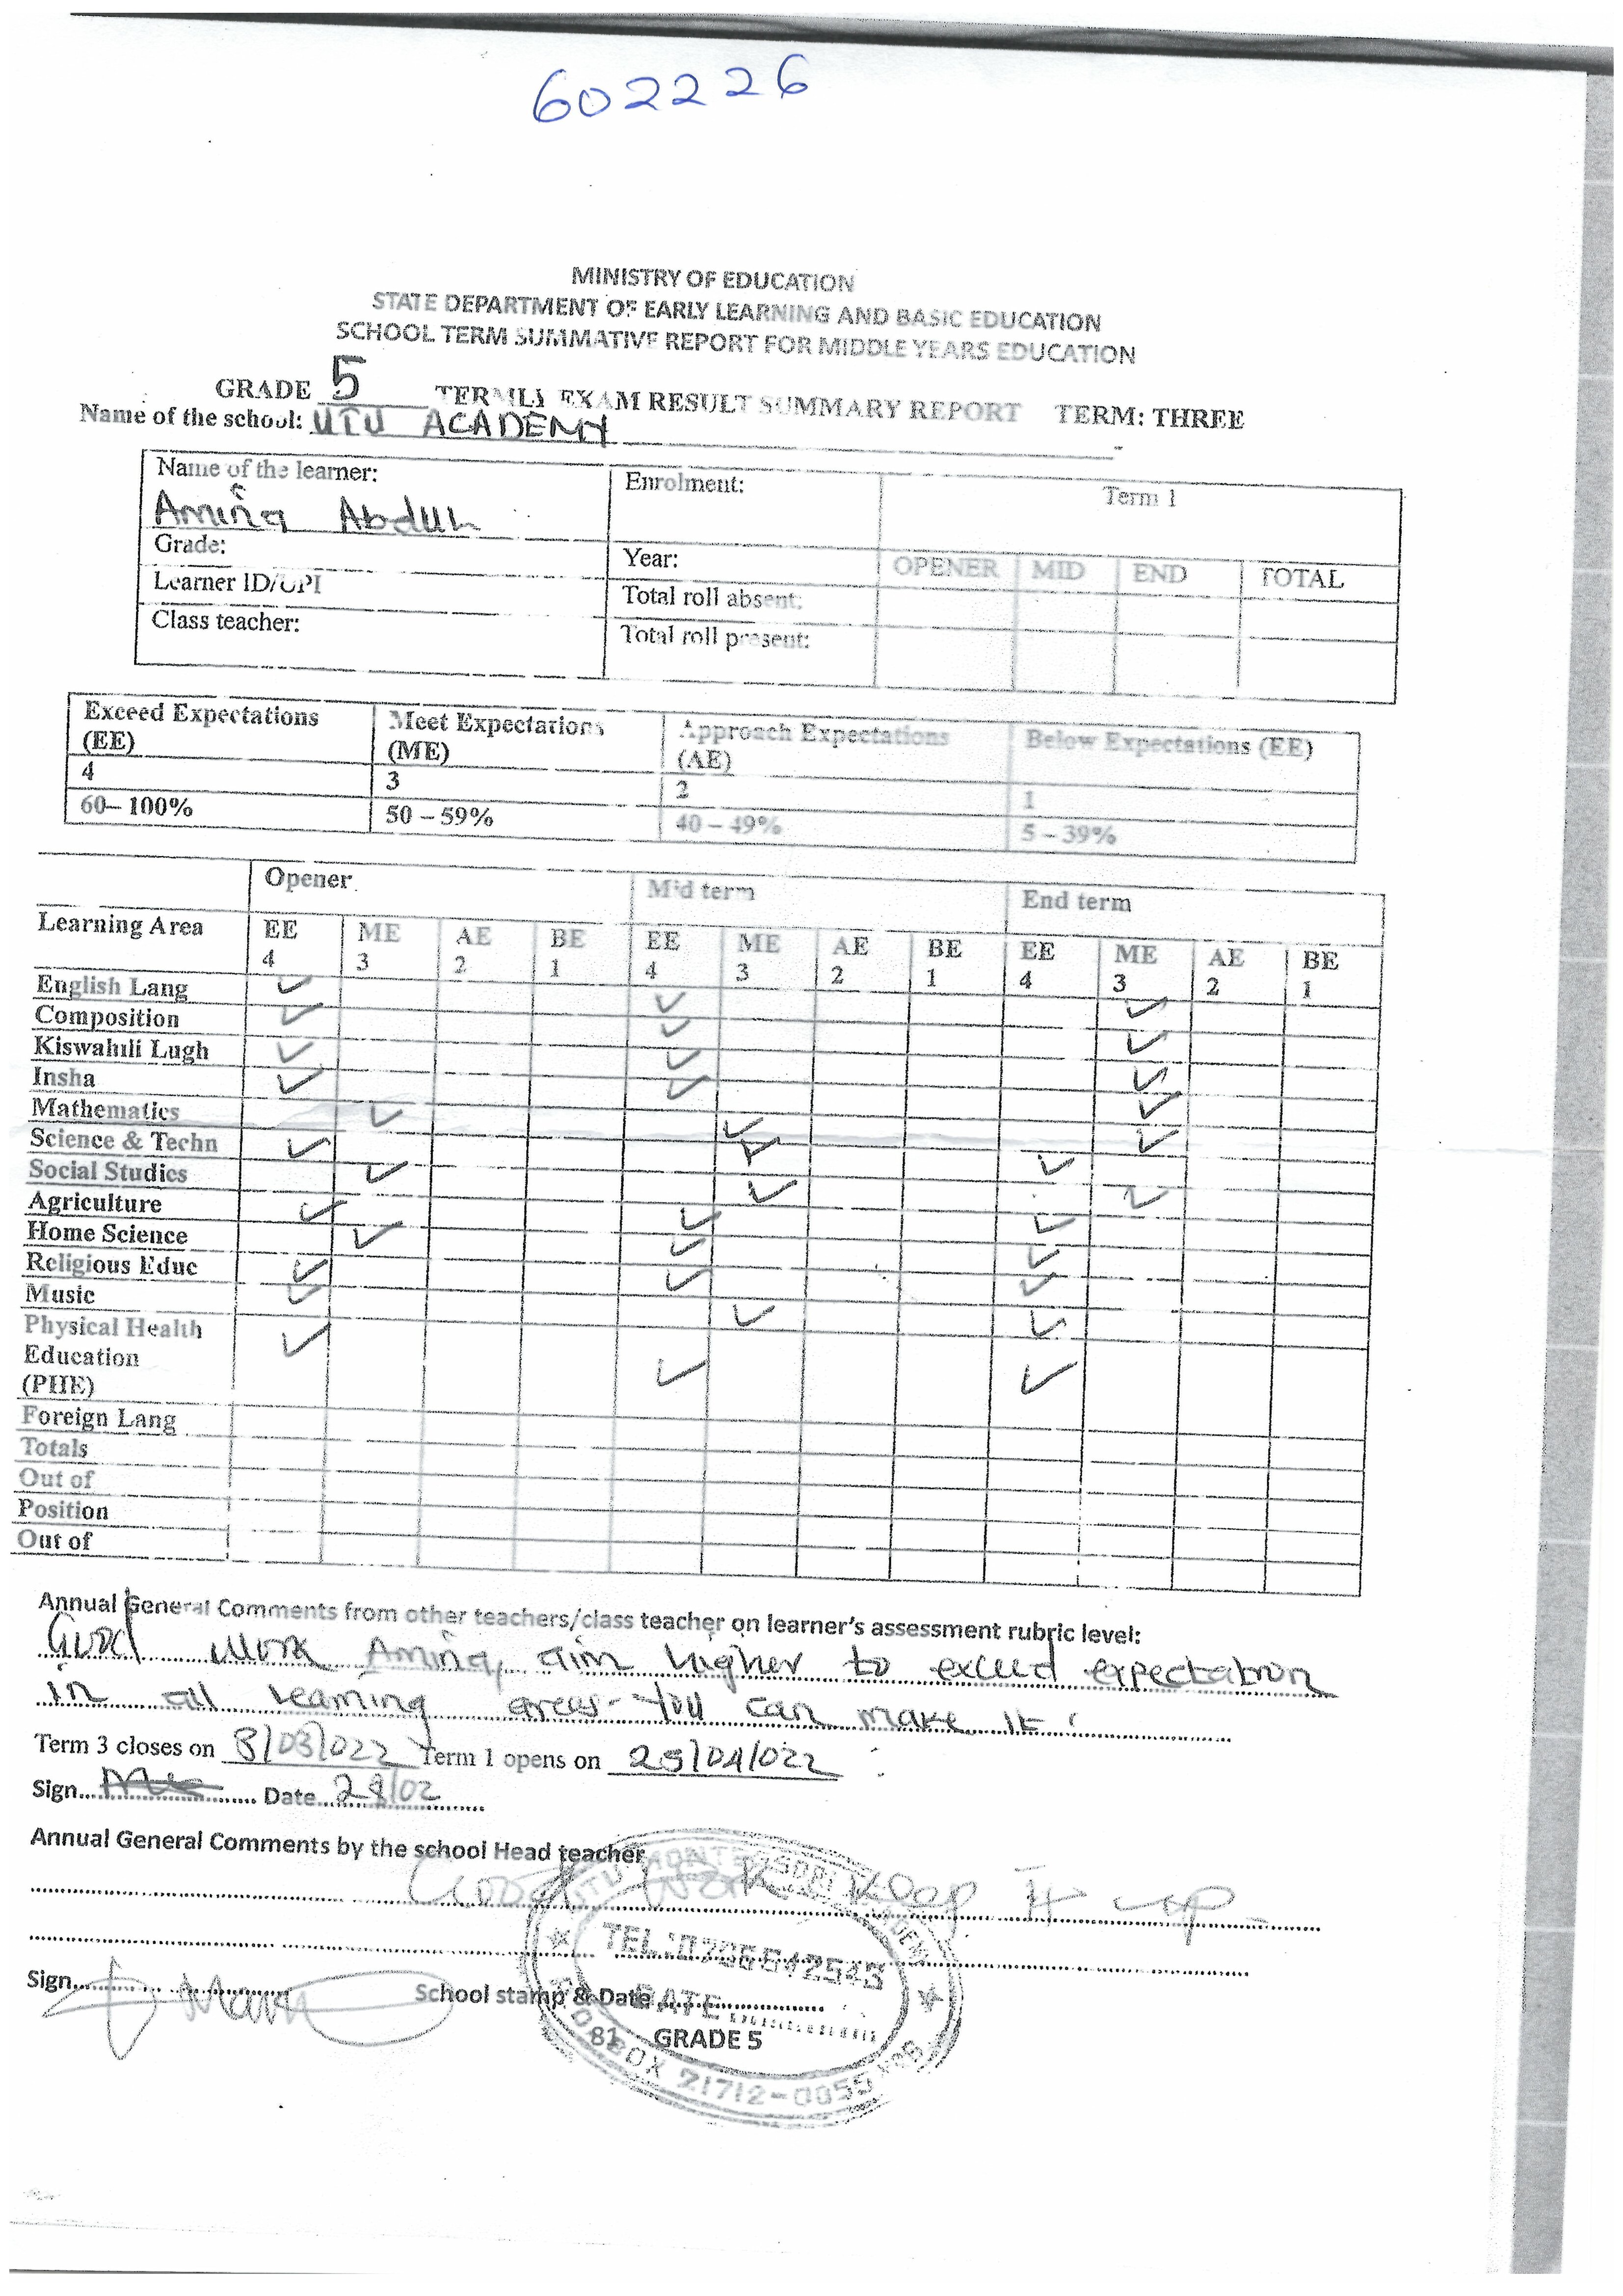 602226
MINISTRY OF EDUCATION
STATE DEPARTMENT OF EARLY LEARNING AND BASIC EDUCATION
SCHOOL TERM SUMMATIVE REPORT FOR MIDDLE YEARS EDUCATION
GRADE 5 EXAM RESULT SUMMARY REPORT TERM: THREE
Name of the school: UTU ACADEMY
Name of the learner: Enrolment: Term 1
Amina
Grade: Year: OPENER MID END TOTAL
Learner ID/UPI Total roll absent:
Class teacher: Total roll present:
Exceed Expectations Meet Expectations Approach Expectations Below Expectations (EE)
(EE) (ME) (AE)
4 3 2 1
60– 100% 50 – 59% 40 – 49% 5 – 39%
Opener Mid term End term
Learning Area EE ME AE BE EE ME AE BE EE ME AE BE
4 3 2 1 4 3 2 1 4 3 2 1
English Lang ✓ ✓ ✓
Composition ✓ ✓ ✓
Kiswahili Lugh ✓ ✓ ✓
Insha ✓ ✓ ✓
Mathematics ✓ ✓ ✓
Science & Techn ✓ ✓ ✓
Social Studies ✓ ✓ ✓
Agriculture ✓ ✓ ✓
Home Science ✓ ✓ ✓
Religious Educ ✓ ✓ ✓
Music ✓ ✓ ✓
Physical Health ✓ ✓ ✓
Education
(PHE)
Foreign Lang
Totals
Out of
Position
Out of
Annual General Comments from other teachers/class teacher on learner's assessment rubric level:
Good work Amina, aim higher to exceed expectation
in all learning areas. You can make it!
Term 3 closes on 8/03/022 Term 1 opens on 25/04/022
Sign Date 28/02
Annual General Comments by the school Head teacher
Good work keep it up
Sign School stamp & Date
TEL:
DATE
81 GRADE 5
BOX 21712-